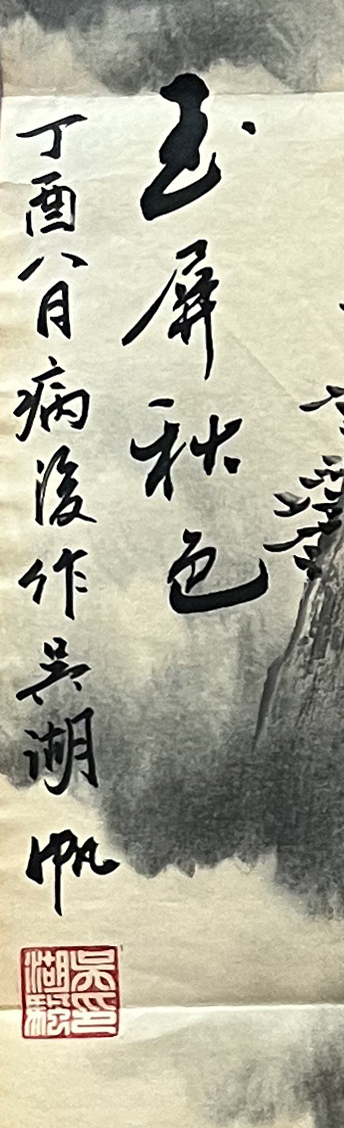 玉屏秋色
丁酉八月病後作吳湖帆
吳湖驄印